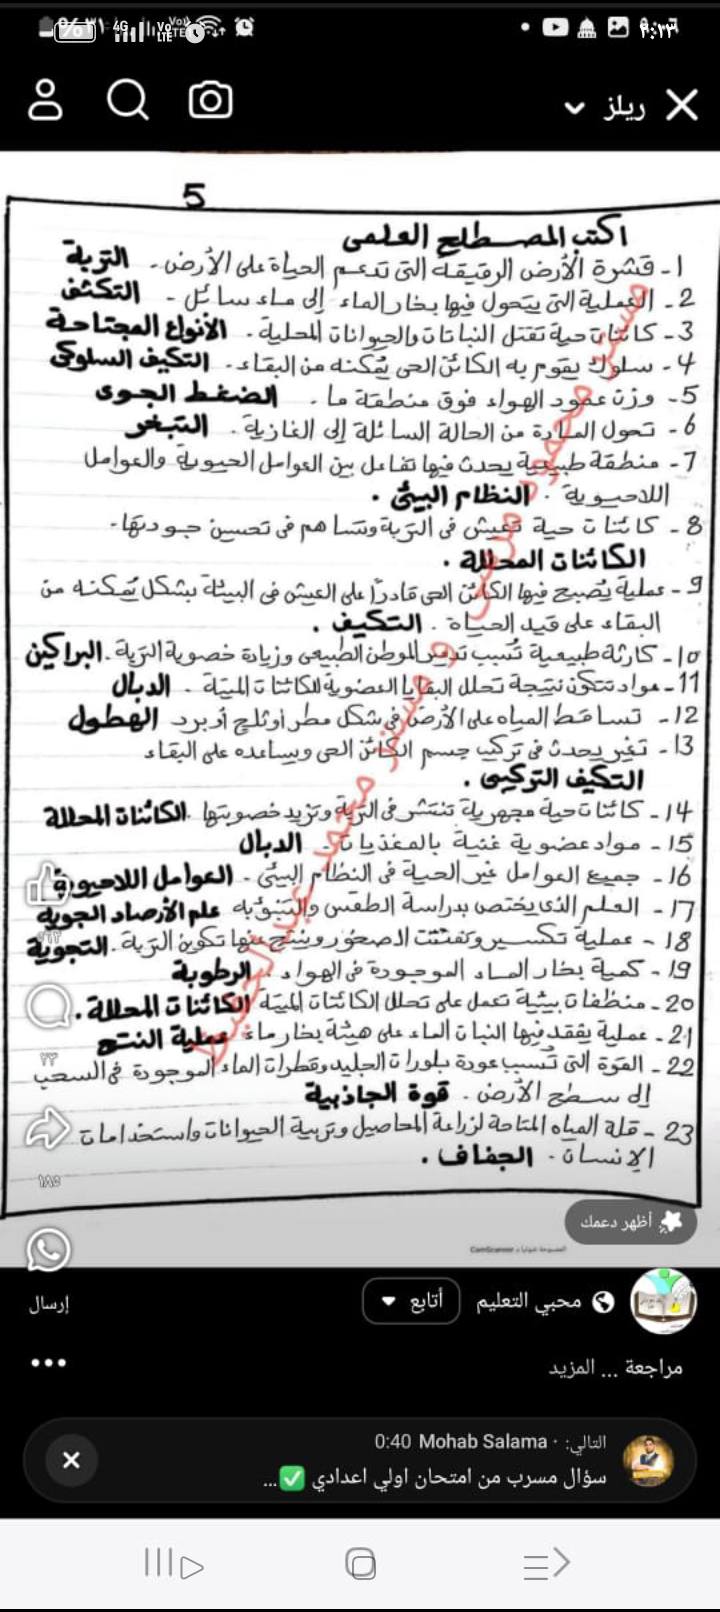 ٩:٢٣
4G
ريلز
5
اكتب المصطلح العلمى
1- قشرة الأرض الرقيقة التى تدعم الحياة على الأرض. التربة
2- العملية التى يتحول فيها بخار الماء إلى ماء سائل. التكثف
3- كائنات حية تقتل النباتات والحيوانات المحلية. الأنواع المجتاحة
4- سلوك يقوم به الكائن الحى يمكنه من البقاء. التكيف السلوكى
5- وزن عمود الهواء فوق منطقة ما. الضغط الجوى
6- تحول المادة من الحالة السائلة إلى الغازية. التبخر
7- منطقة طبيعية يحدث فيها تفاعل بين العوامل الحيوية والعوامل
اللاحيوية. النظام البيئى.
8- كائنات حية تعيش فى التربة وتساهم فى تحسين جودتها.
الكائنات المحللة.
9- عملية يصبح فيها الكائن الحى قادراً على العيش فى البيئة بشكل يمكنه من
البقاء على قيد الحياة. التكيف.
10- كارثة طبيعية تسبب تدمير الموطن الطبيعى وزيادة خصوبة التربة. البراكين
11- مواد تتكون نتيجة تحلل البقايا العضوية للكائنات الميتة. الدبال
12- تساقط المياه على الأرض فى شكل مطر أو ثلج أو برد. الهطول
13- تغير يحدث فى تركيب جسم الكائن الحى ويساعده على البقاء
التكيف التركيبى.
14- كائنات حية مجهرية تنتشر فى التربة وتزيد خصوبتها. الكائنات المحللة
15- مواد عضوية غنية بالمغذيات. الدبال
16- جميع العوامل غير الحية فى النظام البيئى. العوامل اللاحيوية
17- العلم الذى يختص بدراسة الطقس والتنبؤ به علم الأرصاد الجوية
18- عملية تكسير وتفتت الصخور وينتج عنها تكوين التربة. التجوية
19- كمية بخار الماء الموجودة فى الهواء. الرطوبة
20- منظفات بيئية تعمل على تحلل الكائنات الميتة الكائنات المحللة.
21- عملية يفقد فيها النبات الماء على هيئة بخار ماء. عملية النتح
22- القوة التى تسبب عودة بلورات الجليد وقطرات الماء الموجودة فى السحب
إلى سطح الأرض. قوة الجاذبية
23- قلة المياه المتاحة لزراعة المحاصيل وتربية الحيوانات واستخدامات
الإنسان. الجفاف.
٢٣
١٨٥
أظهر دعمك
CamScanner
محبي التعليم
أتابع
إرسال
مراجعة ... المزيد
التالي: · Mohab Salama 0:40
سؤال مسرب من امتحان اولي اعدادي ✅...